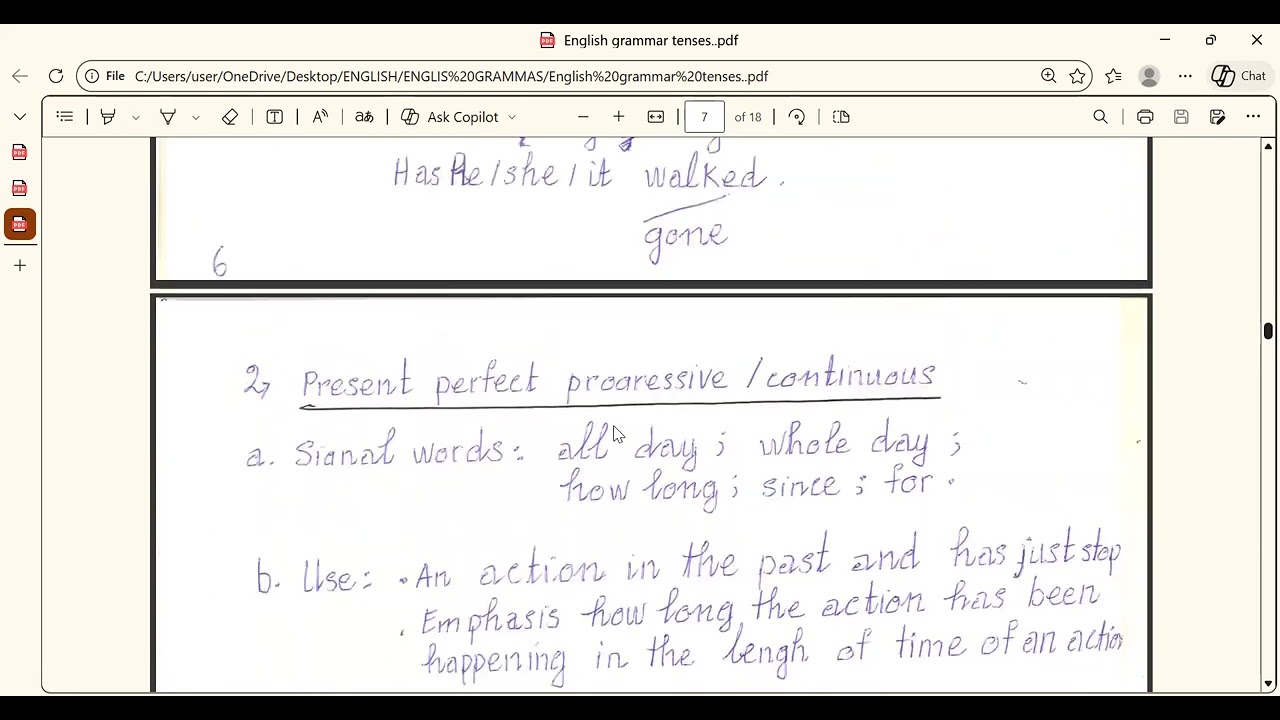 English grammar tenses..pdf
File C:/Users/user/OneDrive/Desktop/ENGLISH/ENGLIS%20GRAMMAS/English%20grammar%20tenses..pdf
Chat
Ask Copilot
7 of 18
Has he/she/it walked.
gone
6
2, Present perfect progressive / continuous
a. Signal words: all day; whole day;
how long; since; for.
b. Use: . An action in the past and has just stop
. Emphasis how long the action has been
happening in the lengh of time of an action